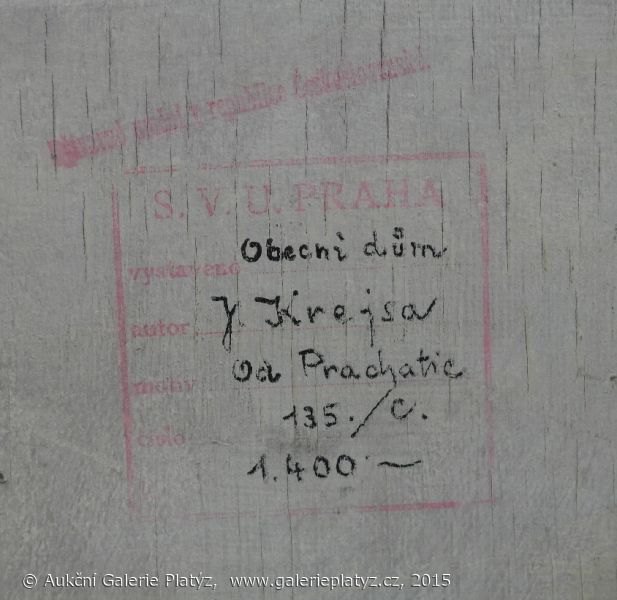 republice československé.
S. V. U. PRAHA
vystaveno Obecní dům
autor J. Krejsa
Od Prachatic
číslo 135./C.
1.400 —
© Aukční Galerie Platýz, www.galerieplatyz.cz, 2015